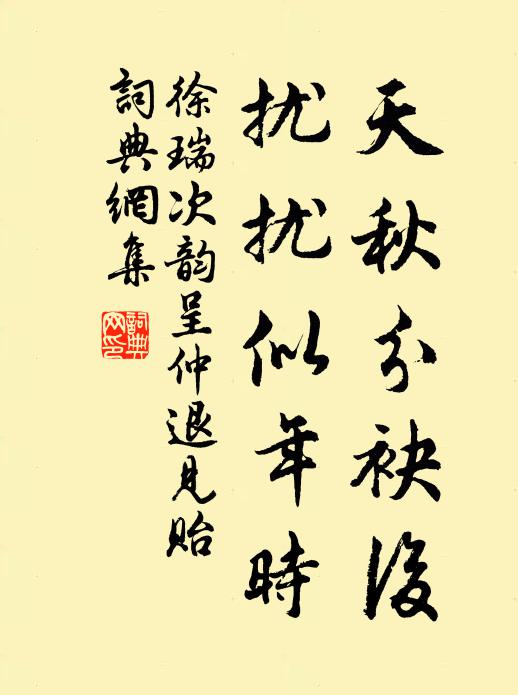 天秋分袂後
扰扰似年時
徐瑞次韵呈仲退見貽
詞典網集
詞典網印